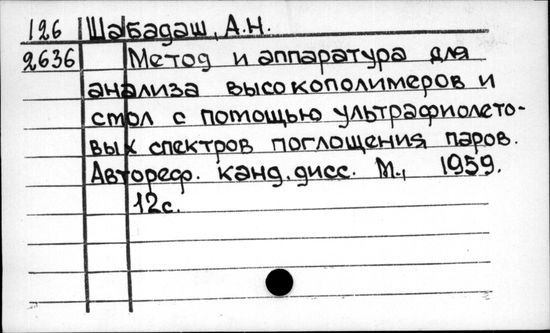 126 Шабадаш, А.Н.
2636 Метод и аппаратура для
анализа высокополимеров и
стол с помощью ультрафиолето-
вых спектров поглощения паров.
Автореф. канд. дисс. М., 1959.
12с.